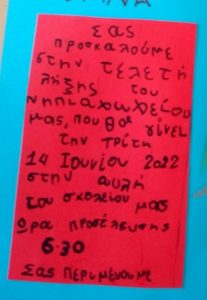 Σας
προσκαλούμε
στην τελετή
λήξης του
νηπιαγωγείου
μας, που θα γίνει
την τρίτη
14 Ιουνίου 2022
στην αυλή
του σχολείου μας
Ωρα προσέλευσης
6.30
Σας περιμένουμε